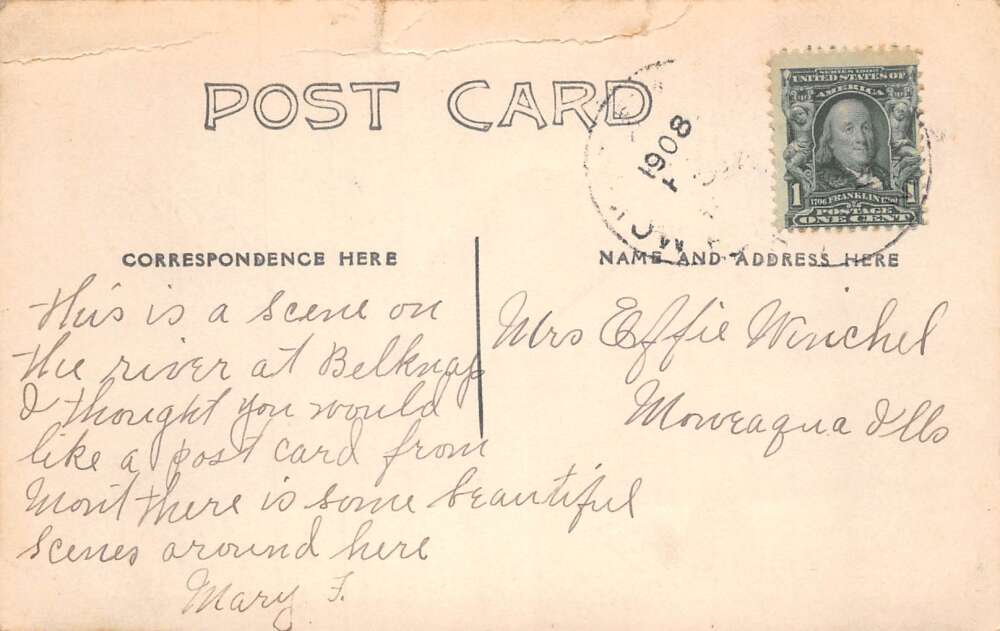 POST CARD
1908
SERIES 1902
UNITED STATES OF
AMERICA
1 1
1706 FRANKLIN 1790
POSTAGE
ONE CENT
CORRESPONDENCE HERE
This is a scene on
the river at Belknap
I thought you would
like a post card from
Mont there is some beautiful
scenes around here
Mary F.
NAME AND ADDRESS HERE
Mrs Effie Winchel
Moweaqua Ills